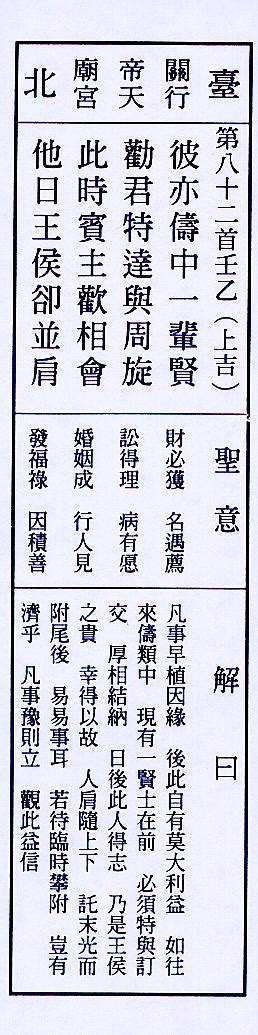 臺北
關行
帝天
廟宮
第八十二首壬乙（上吉）
彼亦儔中一輩賢
勸君特達與周旋
此時賓主歡相會
他日王侯卻並肩
聖意
財必獲　名遇薦
訟得理　病有愿
婚姻成　行人見
發福祿　因積善
解曰
凡事早植因緣　後此自有莫大利益　如往
來儔類中　現有一賢士在前　必須特與訂
交　厚相結納　日後此人得志　乃是王侯
之貴　幸得以故　人肩隨上下　託末光而
附尾後　易易事耳　若待臨時攀附　豈有
濟乎　凡事豫則立　觀此益信